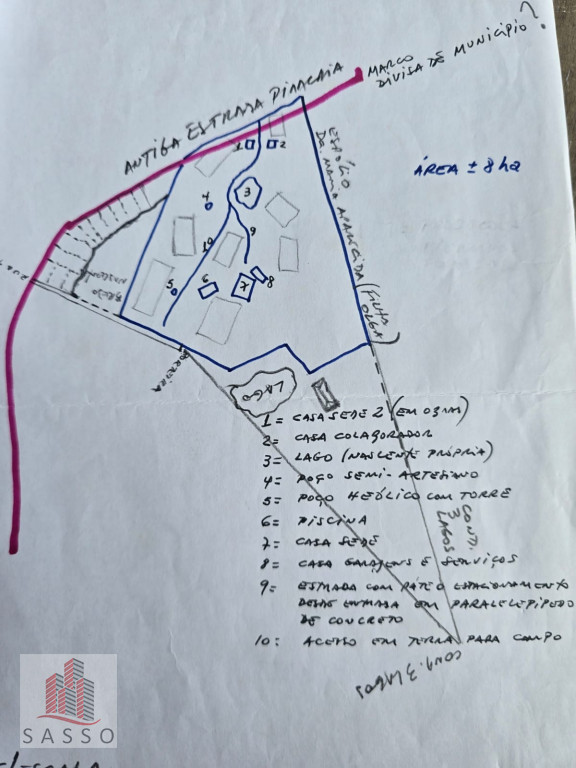 MARCO
DIVISA DE MUNICÍPIO?
ANTIGA ESTRADA PIRACAIA
ÁREA ± 8 ha
ESPÓLIO
DA. MARIA APARECIDA (FILHA
OLGA)
1
2
3
4
10
9
5
6
7
8
RUA
BREJO
PORTEIRA
LAGO
1= CASA SEDE 2 (EM OBRA)
2= CASA COLABORADOR
3= LAGO (NASCENTE PRÓPRIA)
4= POÇO SEMI-ARTESIANO
5= POÇO HEÓLICO COM TORRE
6= PISCINA
7= CASA SEDE
8= CASA GARAGENS E SERVIÇOS
9= ESTRADA COM PÁTEO ESTACIONAMENTO
DESDE ENTRADA EM PARALELEPÍPEDO
DE CONCRETO
10: ACESSO EM TERRA PARA CAMPO
COND.
3
LAGOS
COND. 3 LAGOS
SASSO